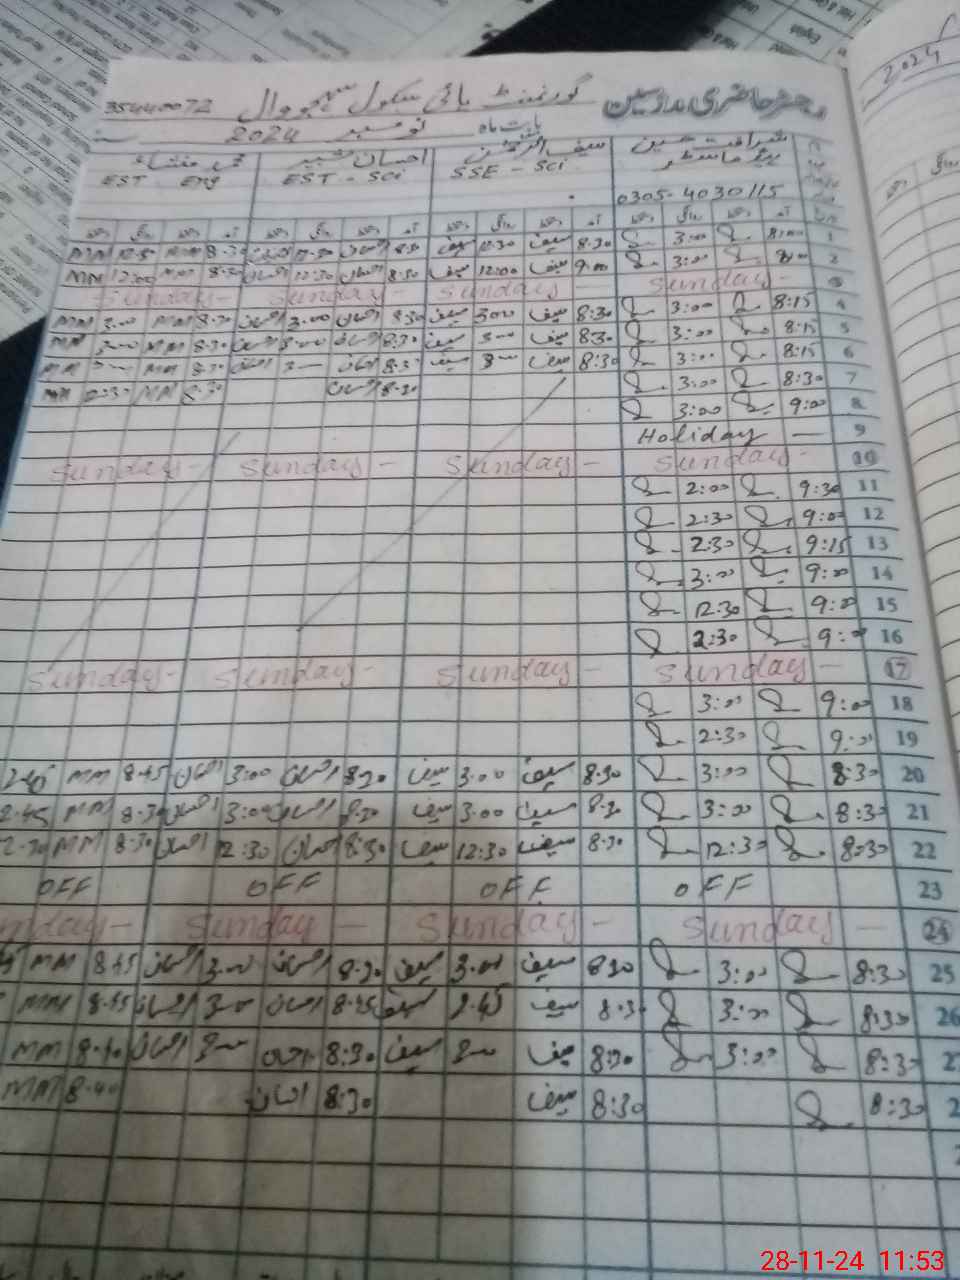 رجسٹر حاضری مدرسین گورنمنٹ ہائی سکول 35440072
بابت ماہ نومبر 2024
شرافت حسین سیف الرحمٰن احسان شبیر
ہیڈ ماسٹر SSE - Sci EST - Sci EST Eng
0305-4030115
آمد دستخط روانگی دستخط آمد دستخط روانگی دستخط آمد دستخط روانگی دستخط آمد دستخط روانگی دستخط
1 8:00 3:00 8:30 سیف 12:30 سیف 8:30 احسان 12:30 احسان 8:30 MM 12:30 MM
2 8:00 3:00 9:00 سیف 12:00 سیف 8:30 احسان 12:30 احسان 8:30 MM 12:00 MM
3 Sunday - Sunday - Sunday - Sunday -
4 8:15 3:00 8:30 سیف 3:00 سیف 8:30 احسان 3:00 احسان 8:30 MM 3:00 MM
5 8:15 3:00 8:30 سیف 3:00 سیف 8:30 احسان 3:00 احسان 8:30 MM 3:00 MM
6 8:15 3:00 8:30 سیف 3:00 سیف 8:30 احسان 3:00 احسان 8:30 MM MM
7 8:30 3:00 8:30 احسان 8:30 MM 2:30 MM
8 9:00 3:00
9 Holiday —
10 Sunday - Sunday - Sunday - Sunday -
11 9:30 2:00
12 9:00 2:30
13 9:15 2:30
14 9:00 3:00
15 9:00 12:30
16 9:00 2:30
17 Sunday - Sunday - Sunday - Sunday -
18 9:00 3:00
19 9:00 2:30
20 8:30 3:00 8:30 سیف 3:00 سیف 8:30 احسان 3:00 احسان 8:45 MM 2:45
21 8:30 3:00 8:30 سیف 3:00 سیف 8:30 احسان 3:00 احسان 8:30 MM 2:45
22 8:30 12:30 8:30 سیف 12:30 سیف 8:30 احسان 12:30 احسان 8:30 MM 2:30
23 OFF OFF OFF OFF
24 Sunday — Sunday - Sunday - nday -
25 8:30 3:00 8:30 سیف 3:00 سیف 8:30 احسان 3:00 احسان 8:45 MM
26 8:30 3:00 8:30 سیف 2:45 سیف 8:45 احسان 3:00 احسان 8:45 MM
2 8:30 3:00 8:30 سیف 3:00 سیف 8:30 احسان 3:00 احسان 8:40 MM
2 8:30 8:30 سیف 8:30 احسان 8:40 MM
2
2024
28-11-24 11:53